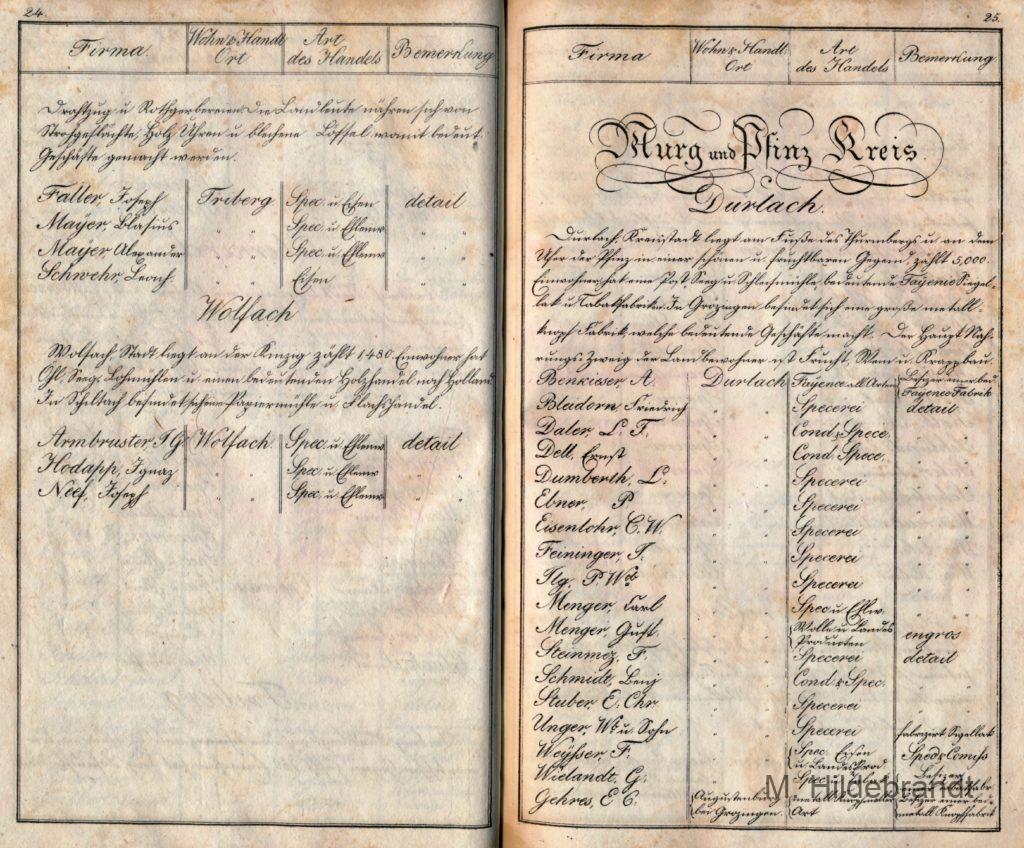 24.
Firma.
Wohn & Handl. Ort
Art des Handels
Bemerkung
Drahtzug u Rothgerbereien. Die Landleute nähren sich von
Strohgeflechte, Holz Uhren u blechene Löffel womit bedeut.
Geschäfte gemacht werden.
Faller, Joseph Triberg Spec. u Eisen detail
Mayer, Blasius " " Spec. u Ehlenw " "
Mayer Alexander " " Spec. u Ehlenw " "
Schwehr, " " Eisen " "
Wolfach
Wolfach, Stadt liegt an der Kinzig zählt 1450 Einwohner hat
Öhl, Seeg, Lohmühlen u einen bedeutenden Holzhandel nach Holland.
In Schiltach befindet sich eine Papiermühle u Flachshandel.
Armbruster, J G Wolfach Spec. u Ehlenw detail
Hodapp, Ignaz " " Spec. u Ehlenw " "
Neef, Joseph " " Spec. u Ehlenw " "
25.
Firma
Wohn & Handl. Ort
Art des Handels
Bemerkung.
Murg und Pfinz Kreis.
Durlach.
Durlach, Kreisstadt liegt am Fuße des Thurnbergs u an dem
Ufer der Pfinz in einer schönen u fruchtbaren Gegend, zählt 5,000.
Einwohner hat eine Post Seeg u Schleifmühle bedeutende Fayence Siegel-
lak u Tabakfabriken. In Grözingen befindet sich eine große metall-
knopf Fabrik welche bedeutende Geschäfte macht. Der Haupt Nah-
rungs Zweig der Landbewohner ist Frucht, Wein u. Krappbau.
Benkieser A. Durlach Fayence all Arten Besizer einer bed Fayence Fabrik
Bladorn, Friedrich " Specerei detail
Daler, L. F. " Cond & Spece. "
Dell, Ernst " Cond. Spece. "
Dumberth, L. " Specerei "
Ebner, P " Specerei "
Eisenlohr, C. W. " Specerei "
Feininger, J. " Specerei "
Jlg. P. Wb " Specerei "
Menger, Carl " Spec u Ehlw. "
Menger, Gust. " Wolle u Landes Producten engros
Steinmez, F. " Specerei detail
Schmidt, Benj " Cond & Spec. "
Stuber, E. Chr " Specerei "
Unger, We. u. Sohn " Specerei fabrizirt Sigellak
Weysser, F. " Spec. Eisen u. Landes Prod. Sped & Comiss
Wielandt, G. " Spec u Besizer
Gehres, E C. Augustenburg bei Grözingen. metall Knopf aller Art Besizer einer bed metall Knopffabrik
M. Hildebrandt